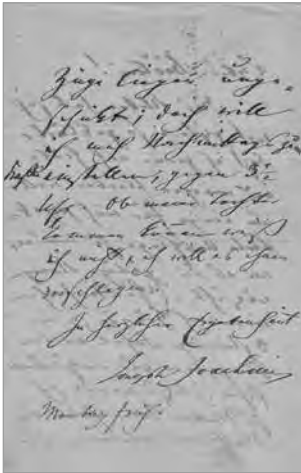 Züge liegen unge-
schützt; doch will
ich mich Nachmittags zum
einstellen, gegen 3½
Uhr. Ob meine Tochter
kommen kann weiß
ich nicht, ich will es ihr
vorschlagen
In herzlicher Ergebenheit
Joseph Joachim
Montag früh.